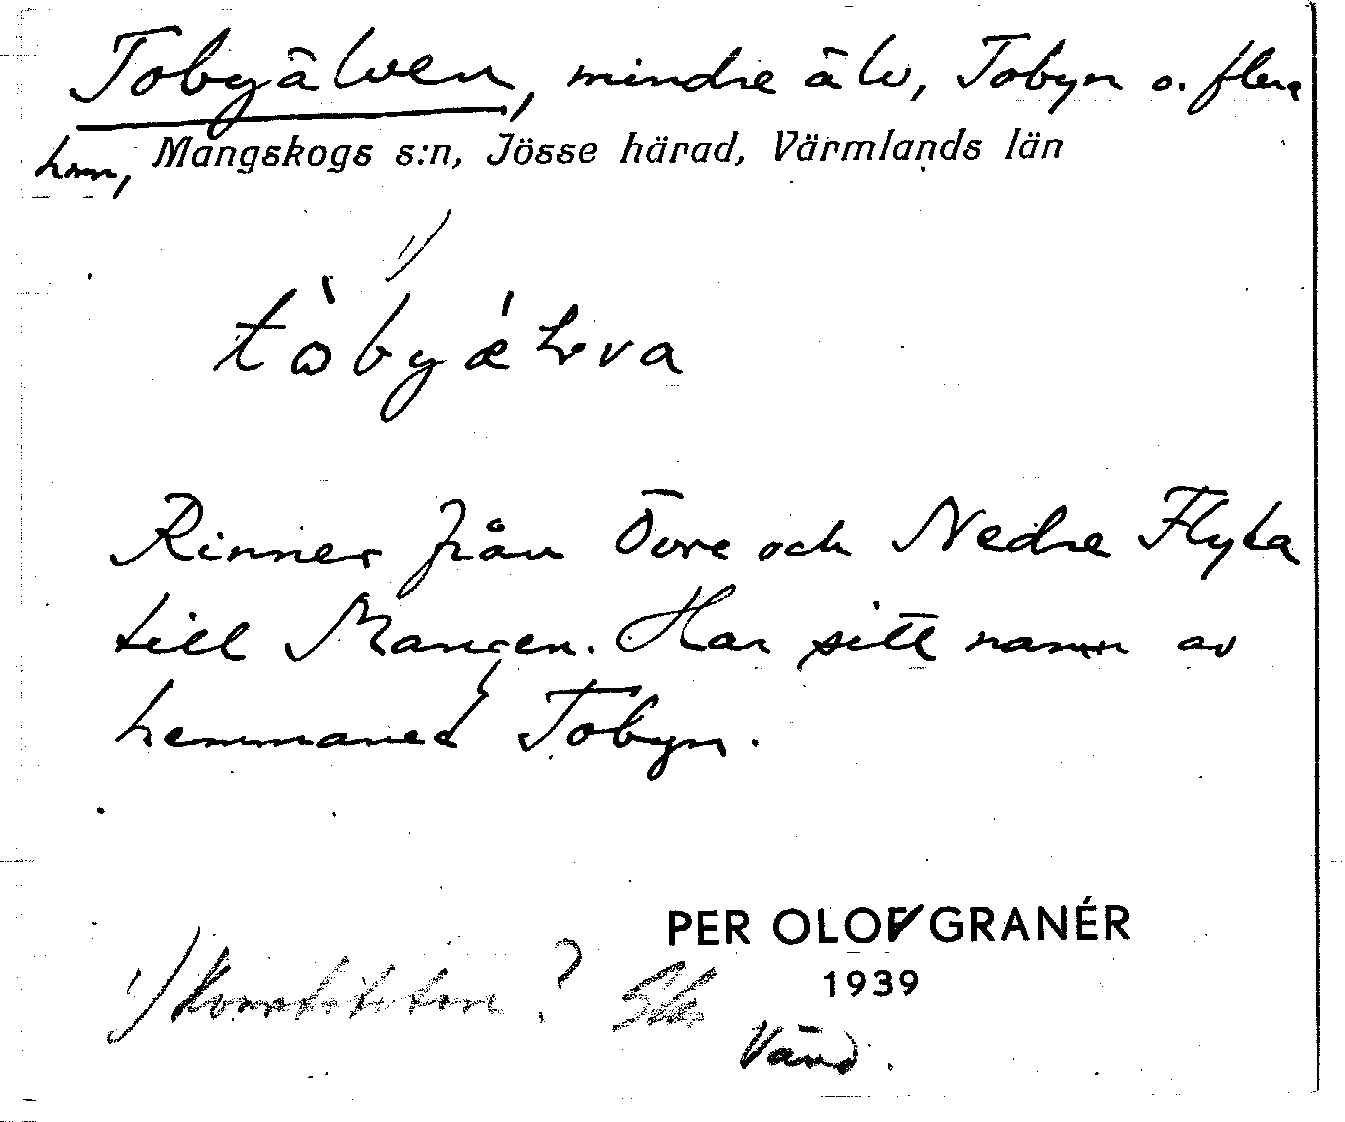 Tobyälven, mindre älv, Tobyn o. flera
hmn, Mangskogs s:n, Jösse härad, Värmlands län
1)
Rinner från Övre och Nedre Flyta
till Mangen. Har sitt namn av
hemmanet Tobyn.
PER OLOF GRANÉR
1939
1) Konstitution?
Vänd.